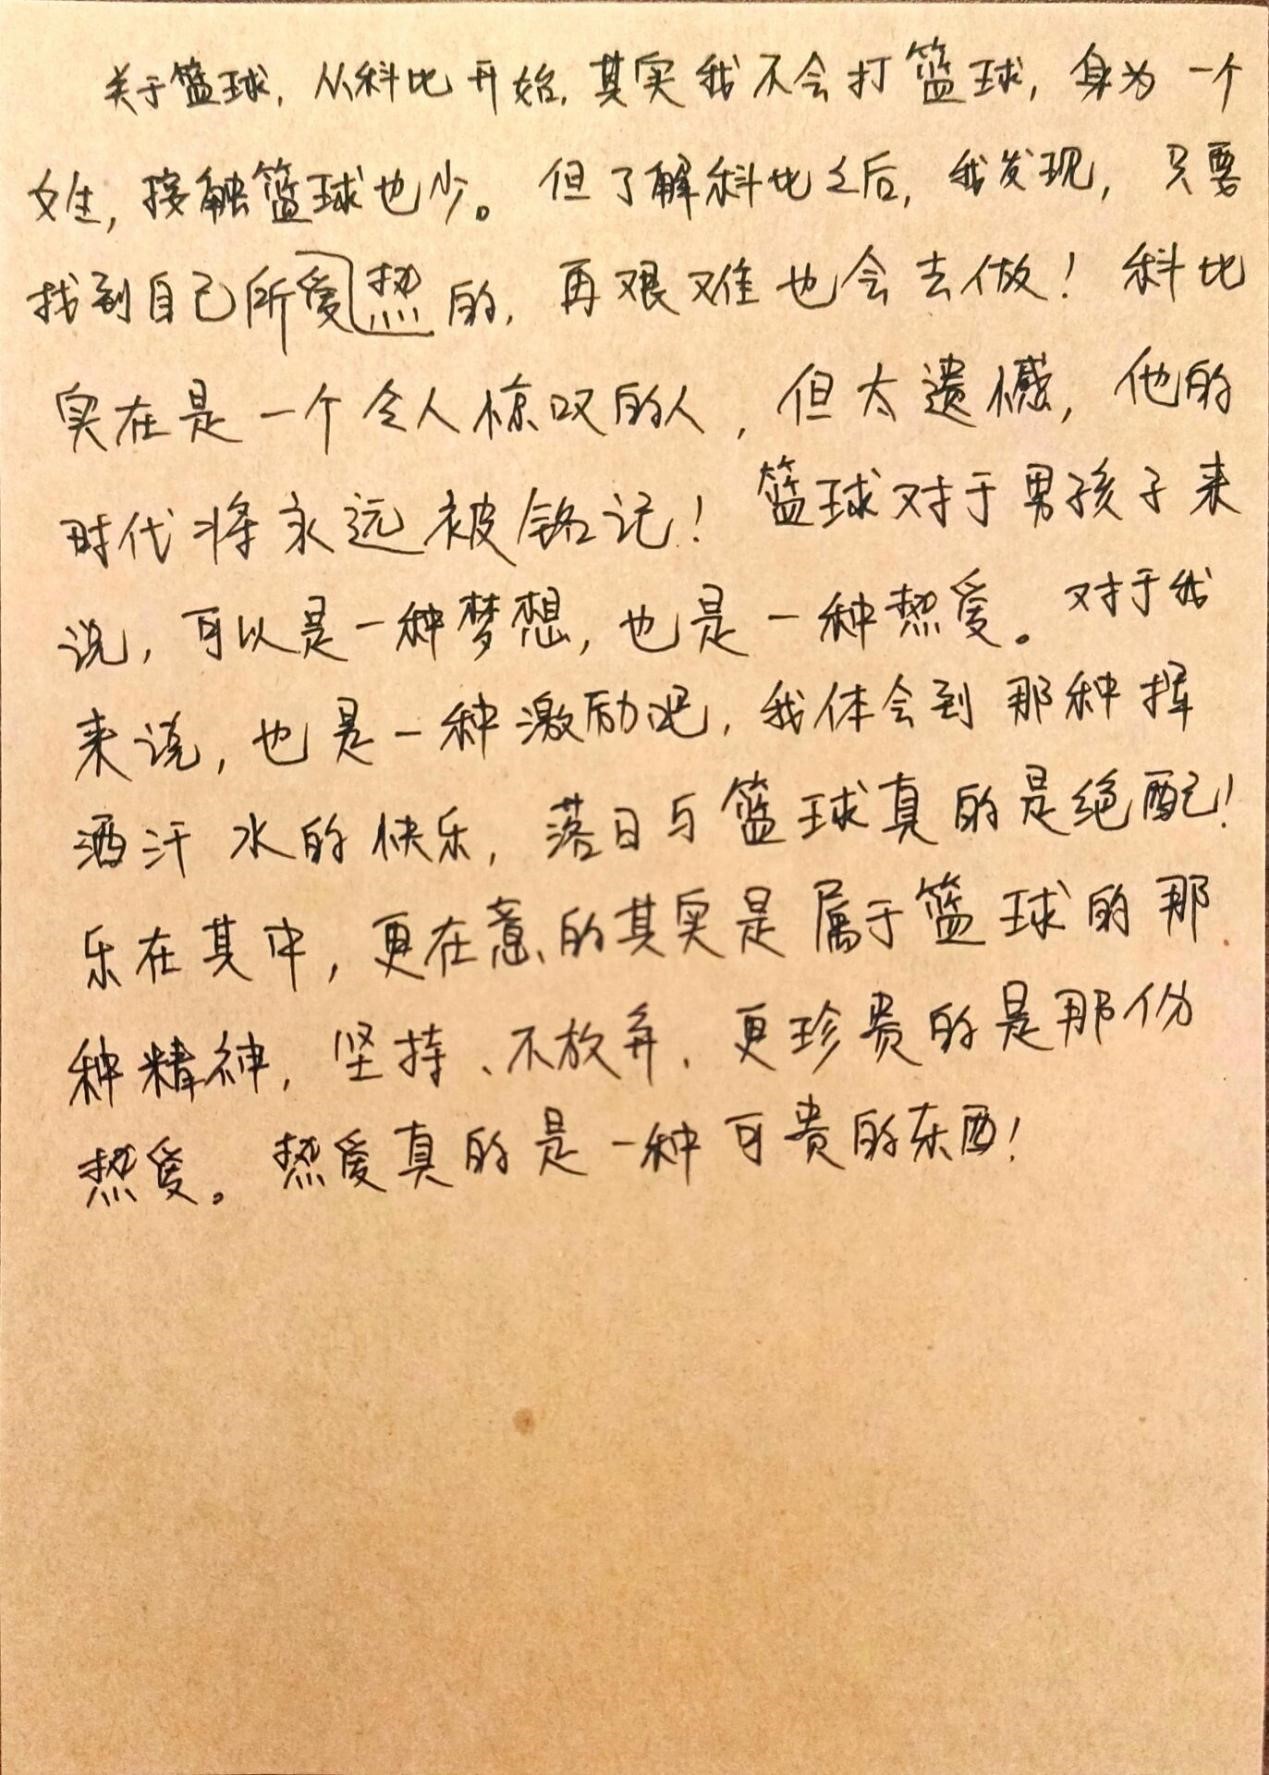 关于篮球,从科比开始,其实我不会打篮球,身为一个
女生,接触篮球也少。但了解科比之后,我发现,只要
找到自己所爱热的,再艰难也会去做!科比
实在是一个令人惊叹的人,但太遗憾,他的
时代将永远被铭记!篮球对于男孩子来
说,可以是一种梦想,也是一种热爱。对于我
来说,也是一种激励吧,我体会到那种挥
洒汗水的快乐,落日与篮球真的是绝配!
乐在其中,更在意的其实是属于篮球的那
种精神,坚持、不放弃,更珍贵的是那份
热爱。热爱真的是一种可贵的东西!